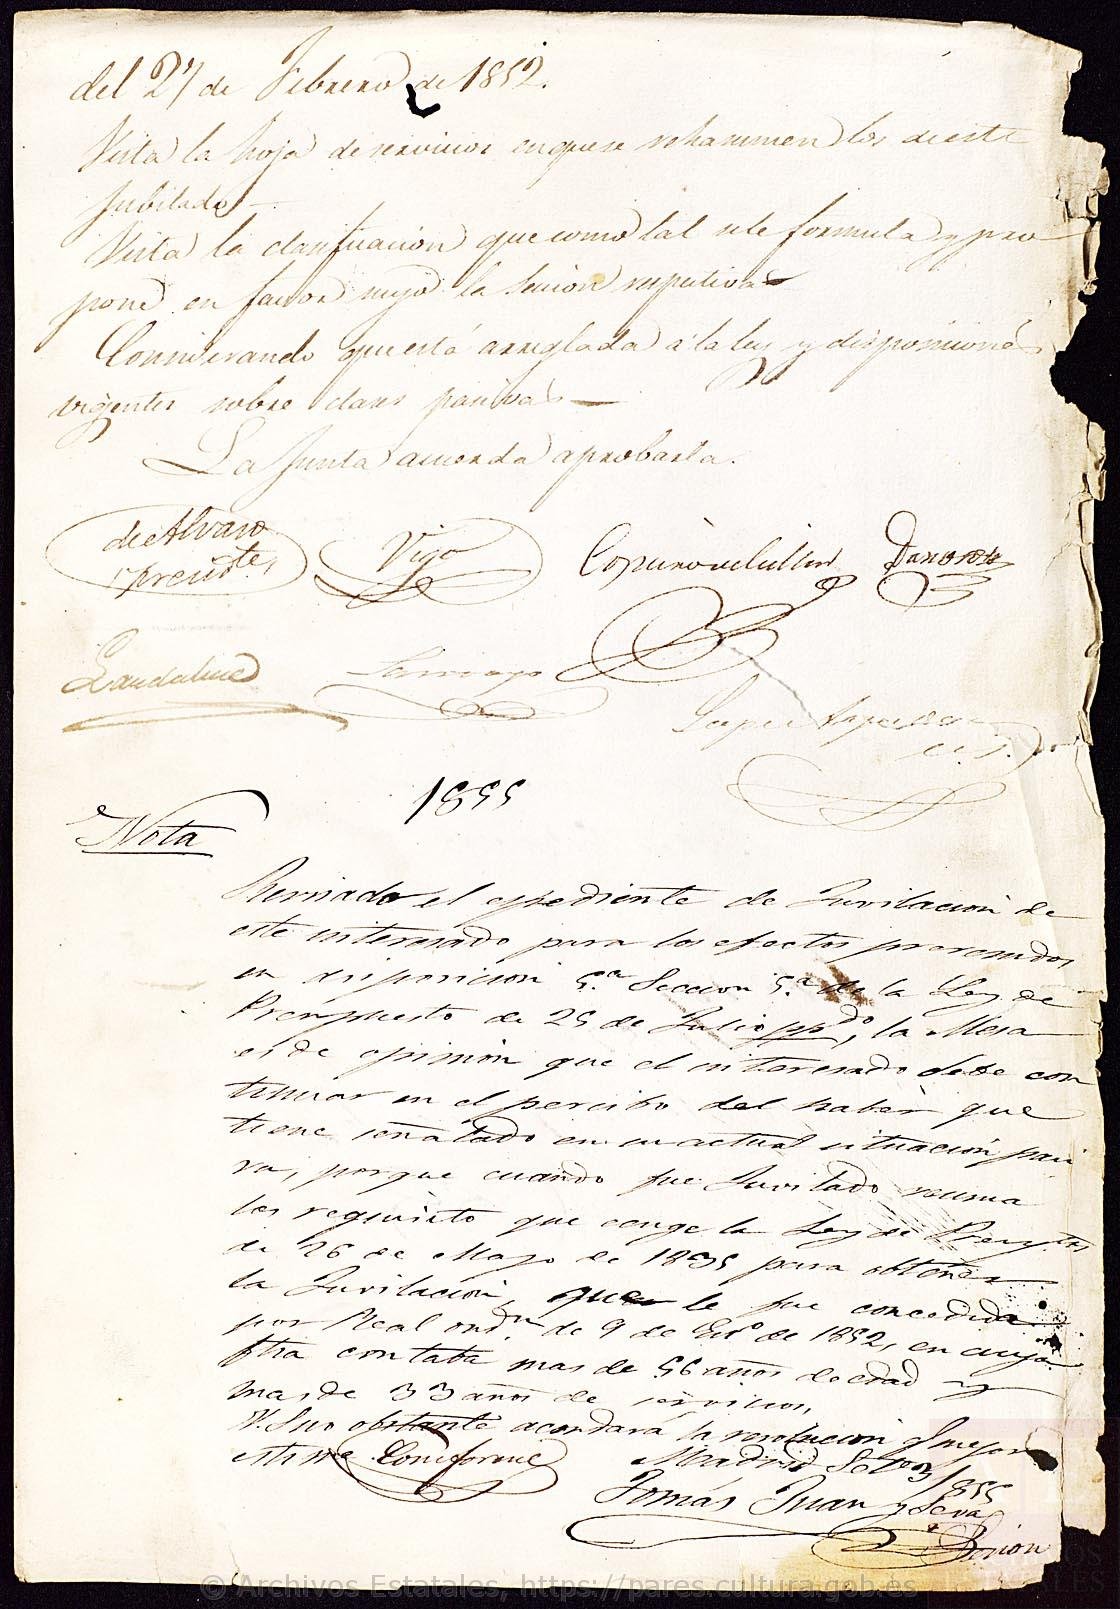 del 27 de Febrero de 1852.
Vista la hoja de servicios en que se rehasumen los de este
Jubilado
Vista la clasificacion que como tal se le formula y pro
pone en favor suyo la Sección respectiva
Considerando que está arreglada a la ley y disposiciones
vigentes sobre clases pasivas
La Junta acuerda aprobarla.
de Alvaro Vigo
preside.te
Santiago
Lopez
1855
Nota
el espediente de Juvilacion de
este interesado para los efectos prevenidos
en disposicion 5.ª Seccion 5.ª de la Ley de
Presupuesto de 25 de Julio pp.do, la Mesa
es de opinión que el interesado debe con
tinuar en el percibo del haber que
tiene señalado en su actual situación pasi
va, porque cuando fue Juvilado reunia
los requisito que exige la Ley de Presup.tos
de 26 de Mayo de 1835 para obtener
la Juvilacion, que le fue concedida
por Real ord.n de 9 de En.o de 1852, en cuya
fha contaba mas de 56 años de edad y
mas de 33 años de servicios,
V.S. no obstante acordará la resolucion q.e mejor
estime Madrid 1855
Conforme Tomás Juan y Seva